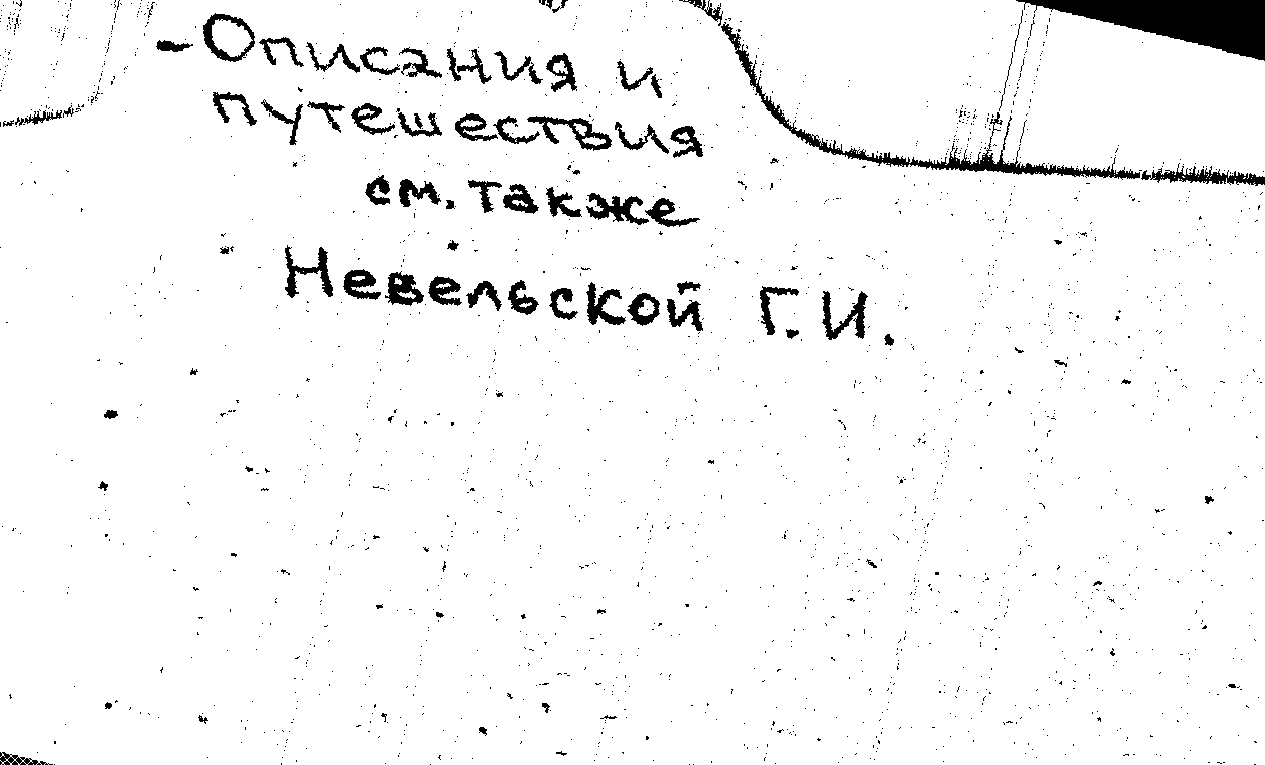 - Описания и
путешествия
см. также
Невельской Г.И.